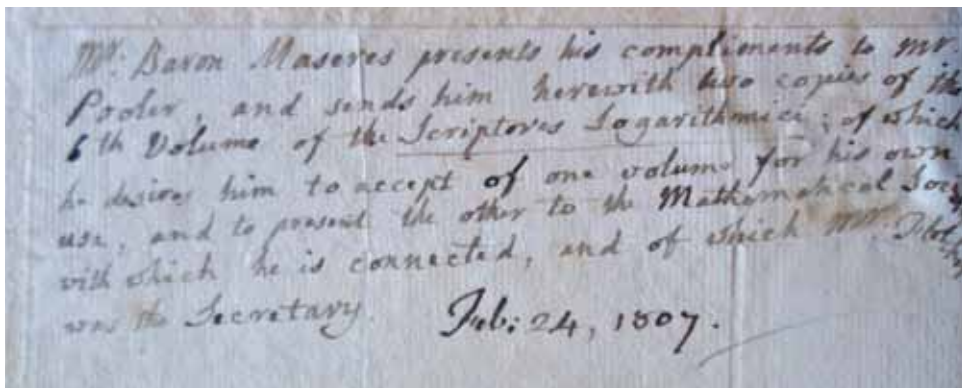 Mr. Baron Maseres presents his compliments to Mr.
and sends him herewith two copies of the
6th Volume of the Scriptores Logarithmici; of which
he desires him to accept of one volume for his own
use, and to present the other to the Mathematical
with which he is connected, and of which Mr.
was the Secretary. Feb: 24, 1807.